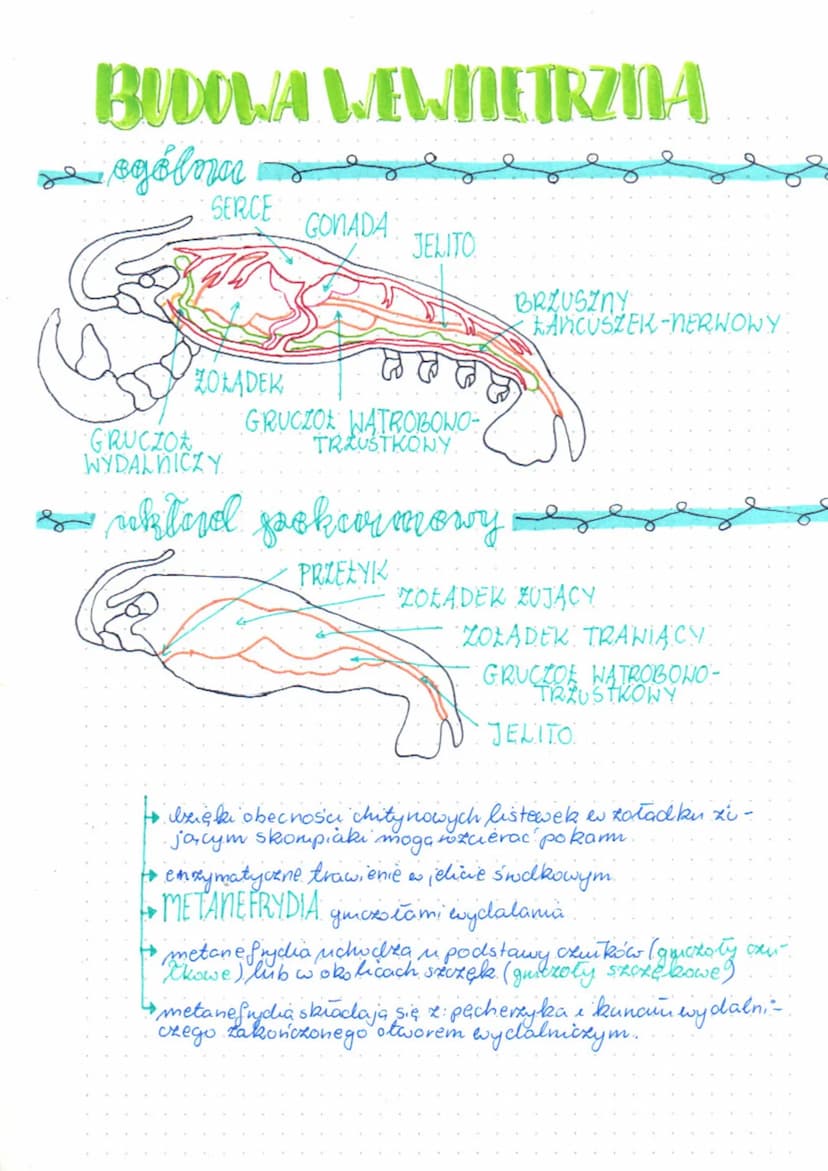 BUDOWA WEWNĘTRZNA
ogólna
SERCE
GONADA
JELITO
BRZUSZNY
ŁAŃCUSZEK-NERWOWY
ŻOŁĄDEK
GRUCZOŁ WĄTROBOWO-
TRZUSTKOWY
GRUCZOŁ
WYDALNICZY
układ pokarmowy
PRZEŁYK
ŻOŁĄDEK ŻUJĄCY
ŻOŁĄDEK TRAWIĄCY
GRUCZOŁ WĄTROBOWO-
TRZUSTKOWY
JELITO
dzięki obecności chitynowych listewek w żołądku żu-
jącym skorupiaki mogą rozcierać pokarm
enzymatyczne trawienie w jelicie środkowym
METANEFRYDIA gruczołami wydalania
metanefrydia uchodzą u podstawy czułków (gruczoły czu-
łkowe) lub w okolicach szczęk (gruczoły szczękowe)
metanefrydia składają się z: pęcherzyka i kanału wydalni-
czego zakończonego otworem wydalniczym.